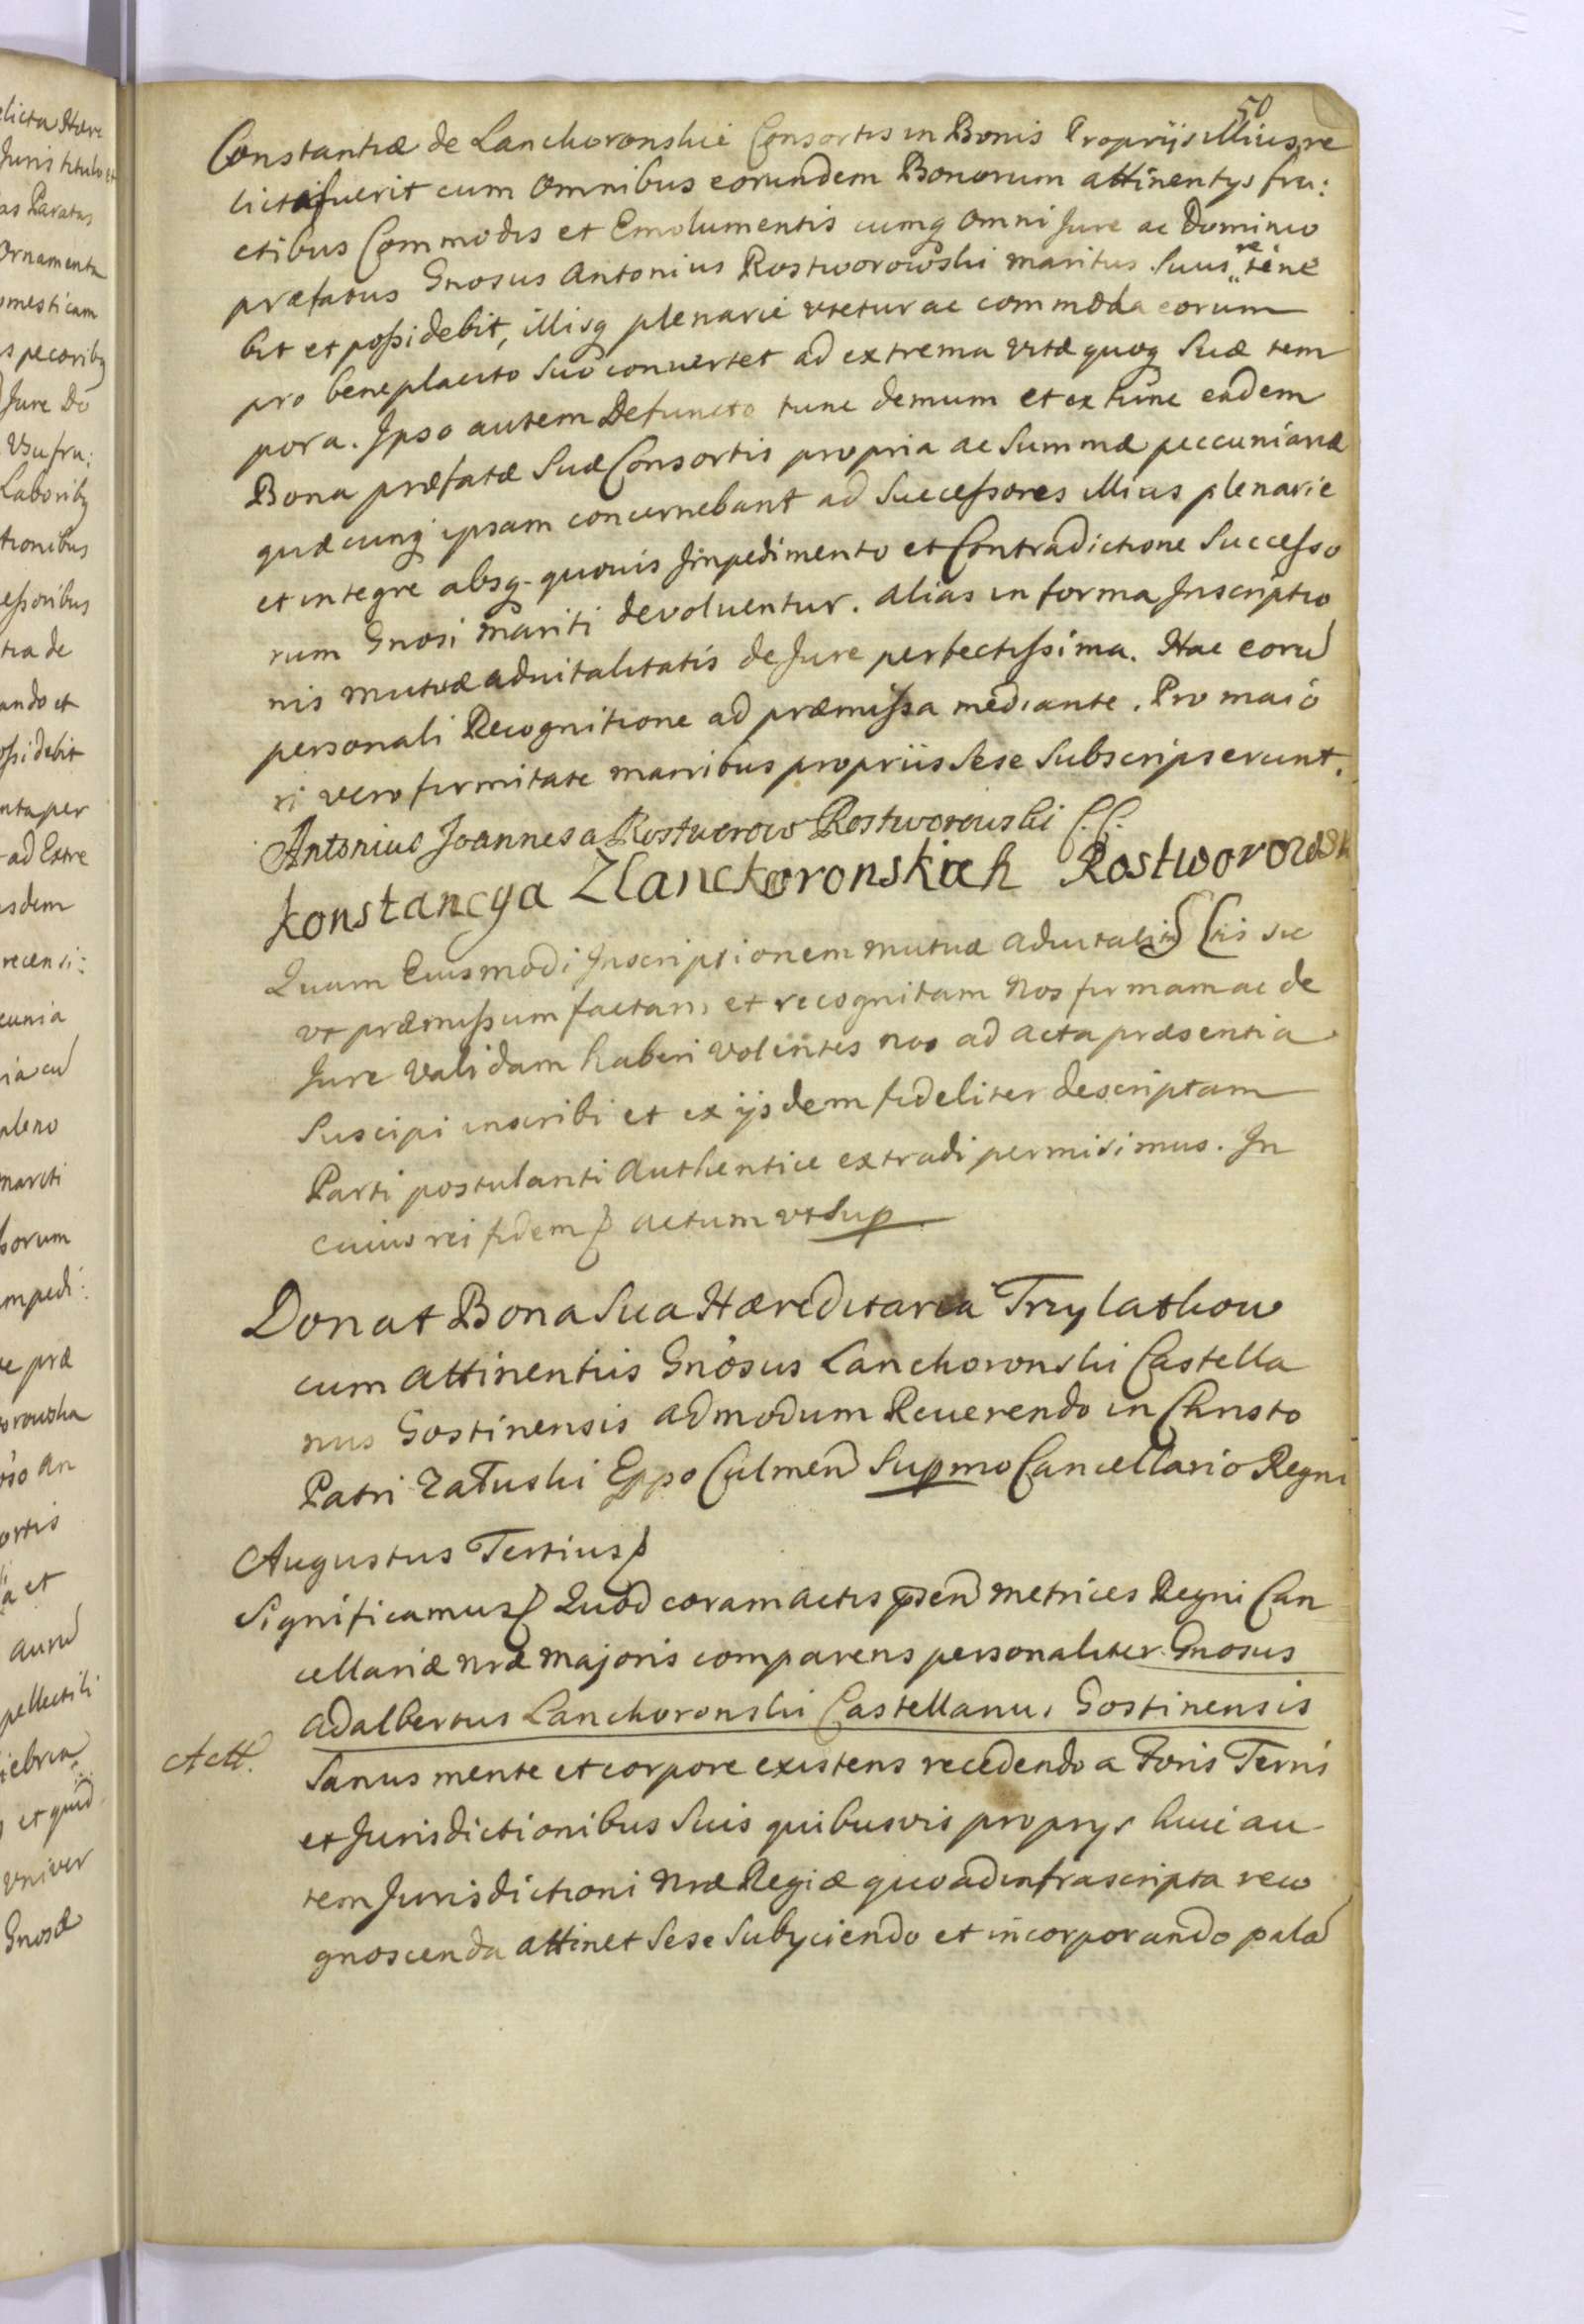 50
Constantiæ de Lanckoronskie Consortis in Bonis Proprijs illius re
licta fuerit cum Omnibus eorundem Bonorum attinentys fru:
ctibus Commodis et Emolumentis cumq Omni Jure ac Dominio
præfatus Gnosus Antonius Rostworowski maritus Suus retine
bit et possidebit, illisq plenarie utetur ac commoda eorum
pro beneplacito Suo convertet ad extrema vitæ quoq Suæ tem
pora. Ipso autem Defuncto tunc demum et ex hinc eadem
Bona præfatæ Suæ Consortis propria ac Summæ peccuniariæ
quæcunq ipsam concernebant ad Successores illius plenarie
et integre absq quovis Impedimento et Contradictione Successo
rum Gnosi mariti devoluentur. alias in forma Inscriptio
nis mutuæ advitalitatis de Jure perfectissima. Hac eorū
personali Recognitione ad præmissa mediante. Pro maio
ri vero firmitate manibus propriis Sese Subscripserunt.
Antonius Joannes a Rostworow Rostworowski
Konstancya Zlanckoronskich Rostworowsk
Quam Eiusmodi Inscriptionem mutuæ advitalitatis sic
vt præmissum factam et recognitam Nos firmam ac de
Jure validam haberi volentes nos ad acta præsentia
Suscipi inscribi et ex ijsdem fideliter descriptam
Parti postulanti Authentice extradi permisimus. In
cuius rei fidem actum vt Sup
Donat Bona Sua Hæreditaria Trzylatkow
cum attinentiis Gnosus Lanckoronski Castella
nus Gostinensis admodum Reuerendo in Christo
Patri Załuski Eppo Culmen Supmo Cancellario Regni
Augustus Tertius
Significamus Quod coram actis psen metrices Regni Can
cellariæ nræ majoris comparens personaliter Gnosus
Adalbertus Lanckoronski Castellanus Gostinensis
Actt.
Sanus mente et corpore existens recedendo a Foris Terris
et Jurisdictionibus Suis quibusvis proprys huic au
tem Jurisdictioni nræ Regiæ quoad infrascripta reco
gnoscenda attinet Sese Subyciendo et incorporando palā